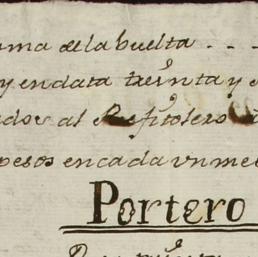 uma de la buelta . . .
y en data treinta y
ados al Refitolero
pesos en cada vn me
Portero